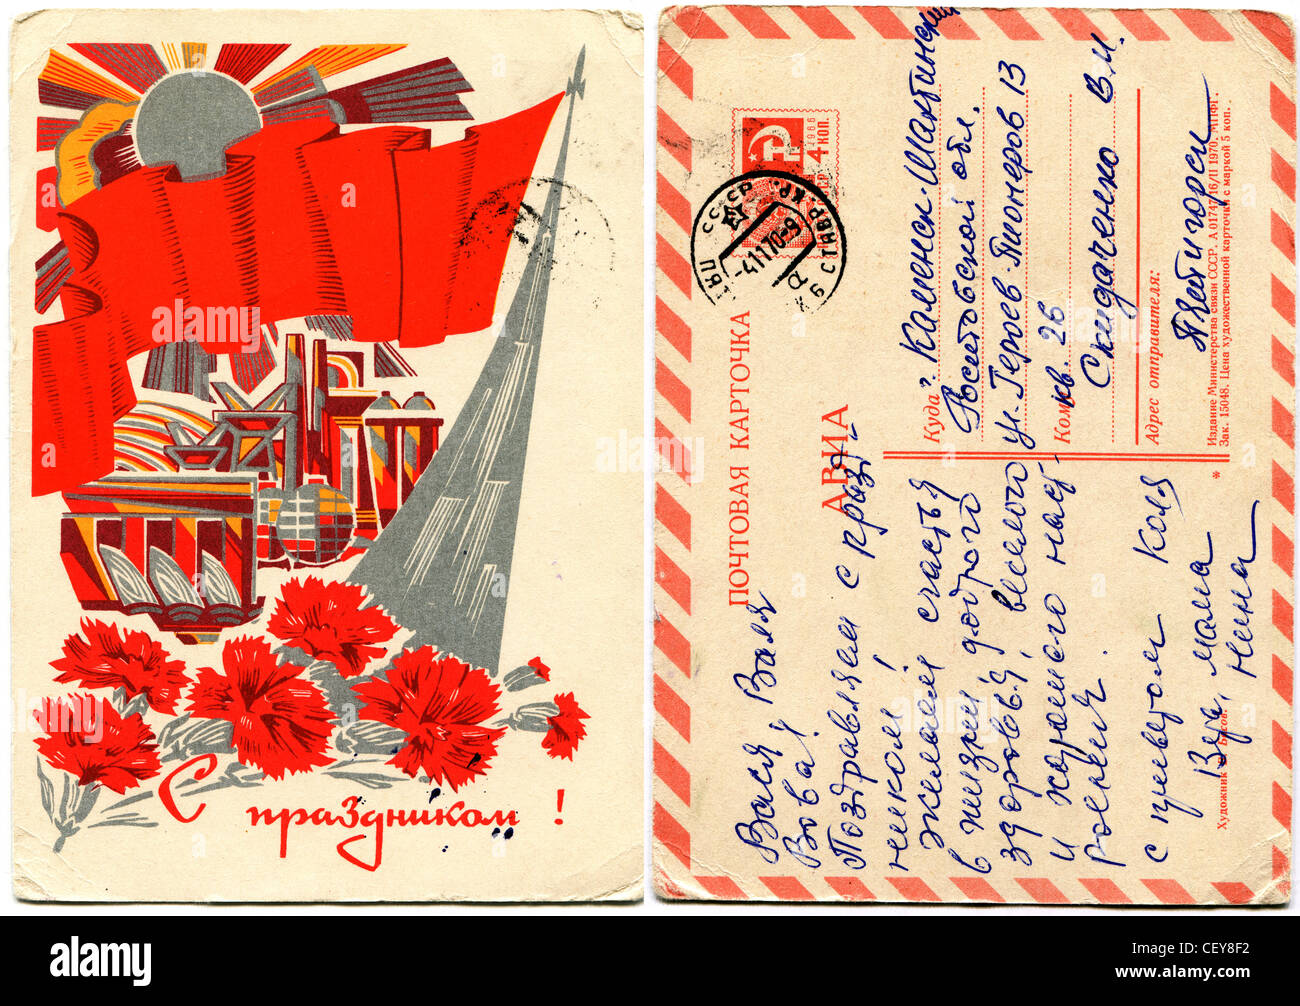 С
праздником !
ПОЧТОВАЯ КАРТОЧКА
АВИА
1966
4 КОП.
СССР
-41170-9
Куда: Каменск-Шахтинский
Ростовской обл.
ул. Героев-Пионеров 13
кв. 26
Кому
Скидаченко В.И.
Адрес отправителя:
Пятигорск
Издание Министерства связи СССР. А 01747 16/II 1970. МПФГ.
Зак. 15048. Цена художественной карточки с маркой 5 коп.
*
Вася Валя
Вова!
Поздравляем с празд-
ником!
желаем счастья
в жизни, доброго
здоровья, веселого
и хорошего наст-
роения.
С приветом Коля
Вера, мама
Нина
alamy
alamy
Image ID: CEY8F2
www.alamy.com